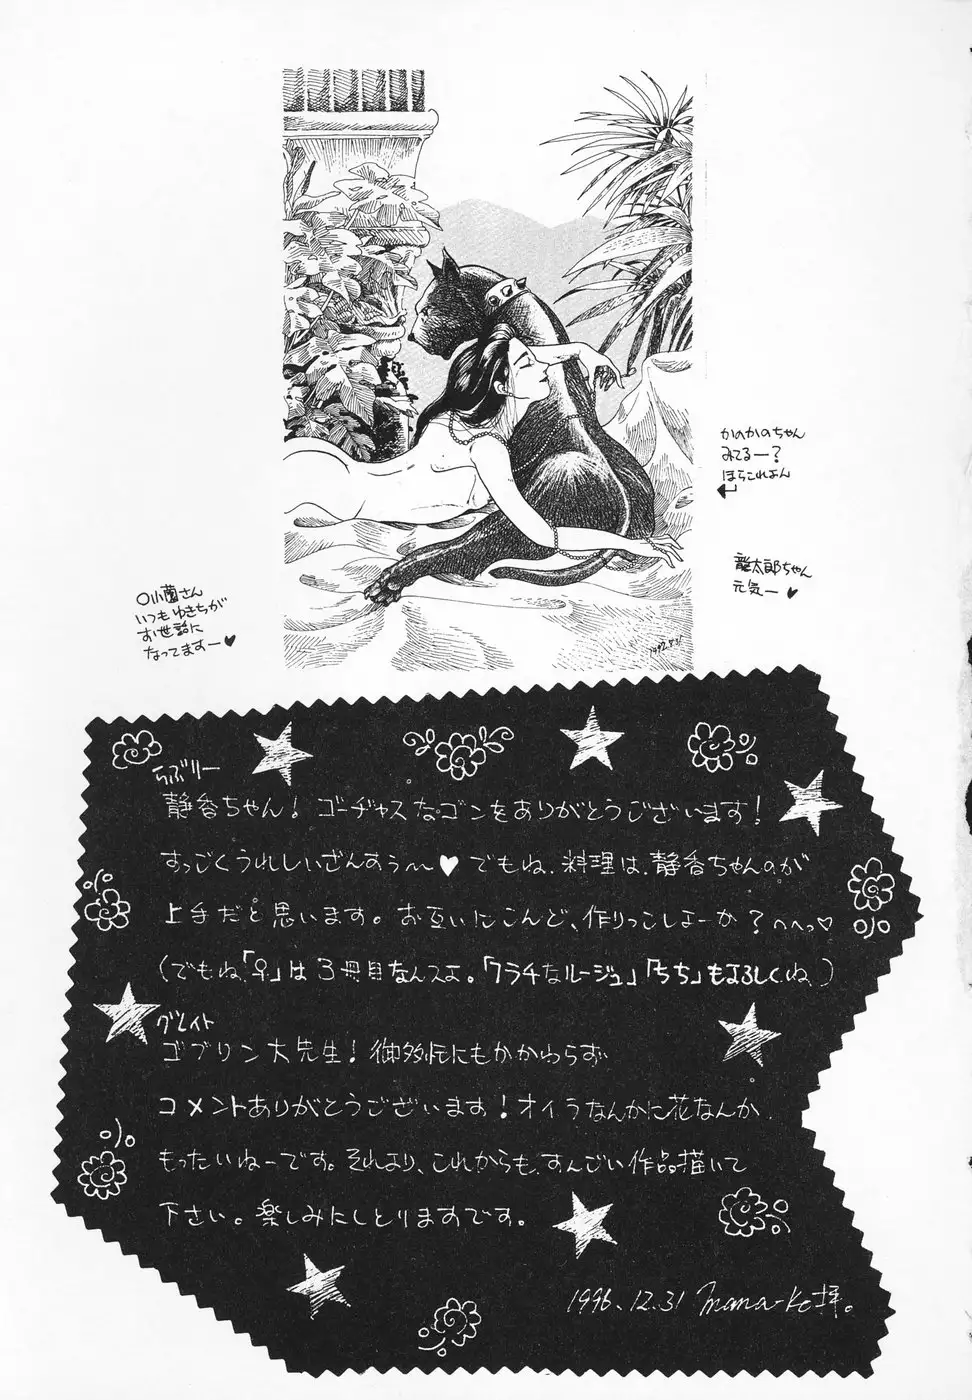 かのかのちゃん
みてるー?
ほらこれよん
龍太郎ちゃん
元気ー♥
小薗さん
いつもゆきちが
お世話に
なってますー♥
らぶりー
静香ちゃん! ゴージャスなゴンをありがとうございます!
すっごくうれしいざんすぅ〜♥ でもね、料理は、静香ちゃんのが
上手だと思います。お互いにこんど、作りっこしよーか?へへっ♡
(でもね、「♀」は3冊目なんスよ。「フラチなルージュ」「うち」もよろしくね)
グレイト
ゴブリン大先生! 御多忙にもかかわらず
コメントありがとうございます! オイラなんかに花なんか
もったいねーです。それより、これからも、すんごい作品描いて
下さい。楽しみにしとりますです。
1996.12.31 mana-Ko拝。